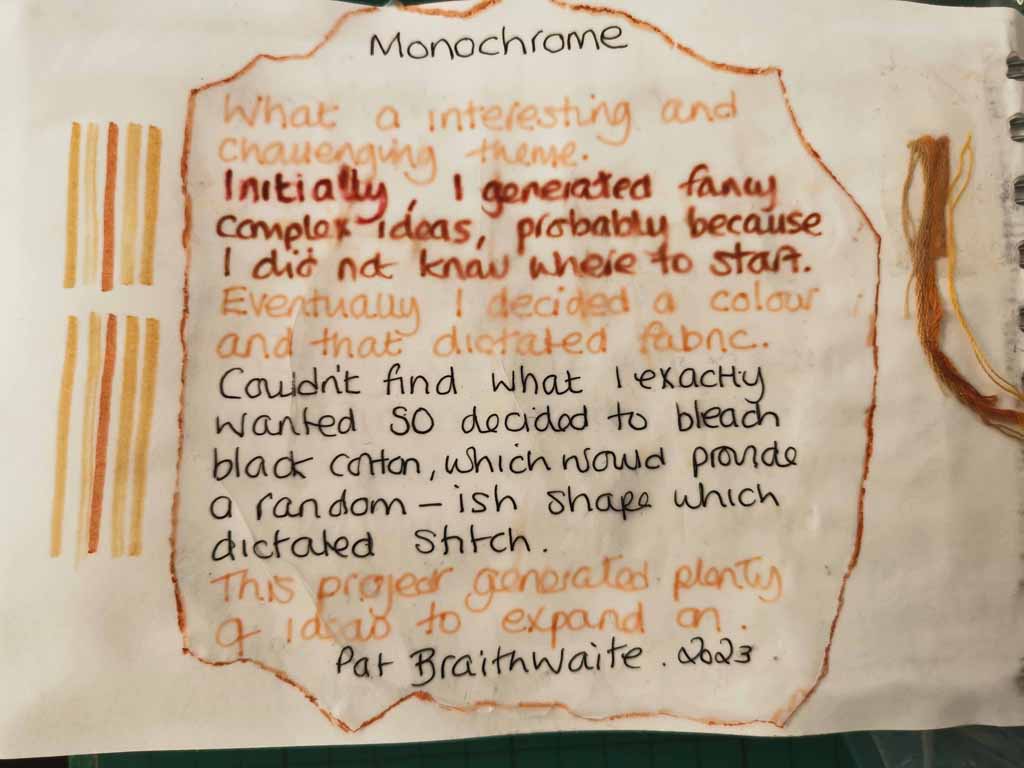 Monochrome
What a interesting and
challenging theme.
Initially, I generated fancy
complex ideas, probably because
I did not know where to start.
Eventually I decided a colour
and that dictated fabric.
Couldn't find what I exactly
wanted so decided to bleach
black cotton, which would provide
a random - ish shape which
dictated stitch.
This project generated plenty
of ideas to expand on.
Pat Braithwaite. 2023.